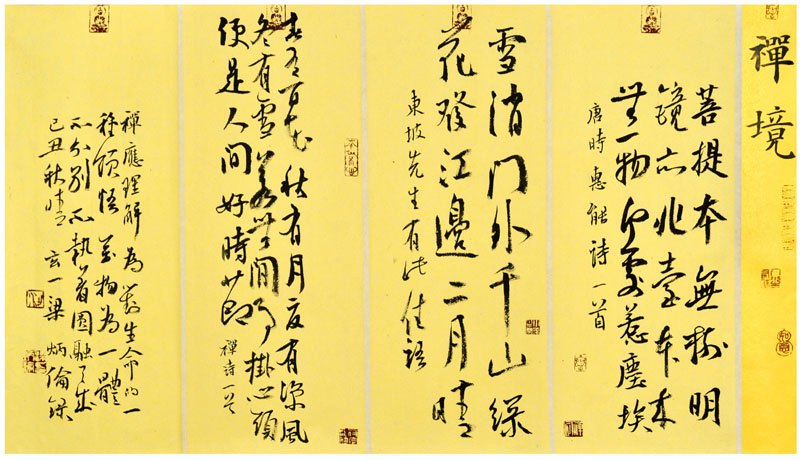 禪境
菩提本無樹明
鏡亦非臺本來
無一物何處惹塵埃
唐時惠能詩一首
雪消門外千山綠
花發江邊二月晴
東坡先生有此佳語
春有百花秋有月夏有涼風
冬有雪若無閒事掛心頭
便是人間好時節
禪詩一首
禪應理解為對生命的一
種頓悟萬物為一體
不分別不執著圓融
己丑秋晴玄一梁炳倫錄